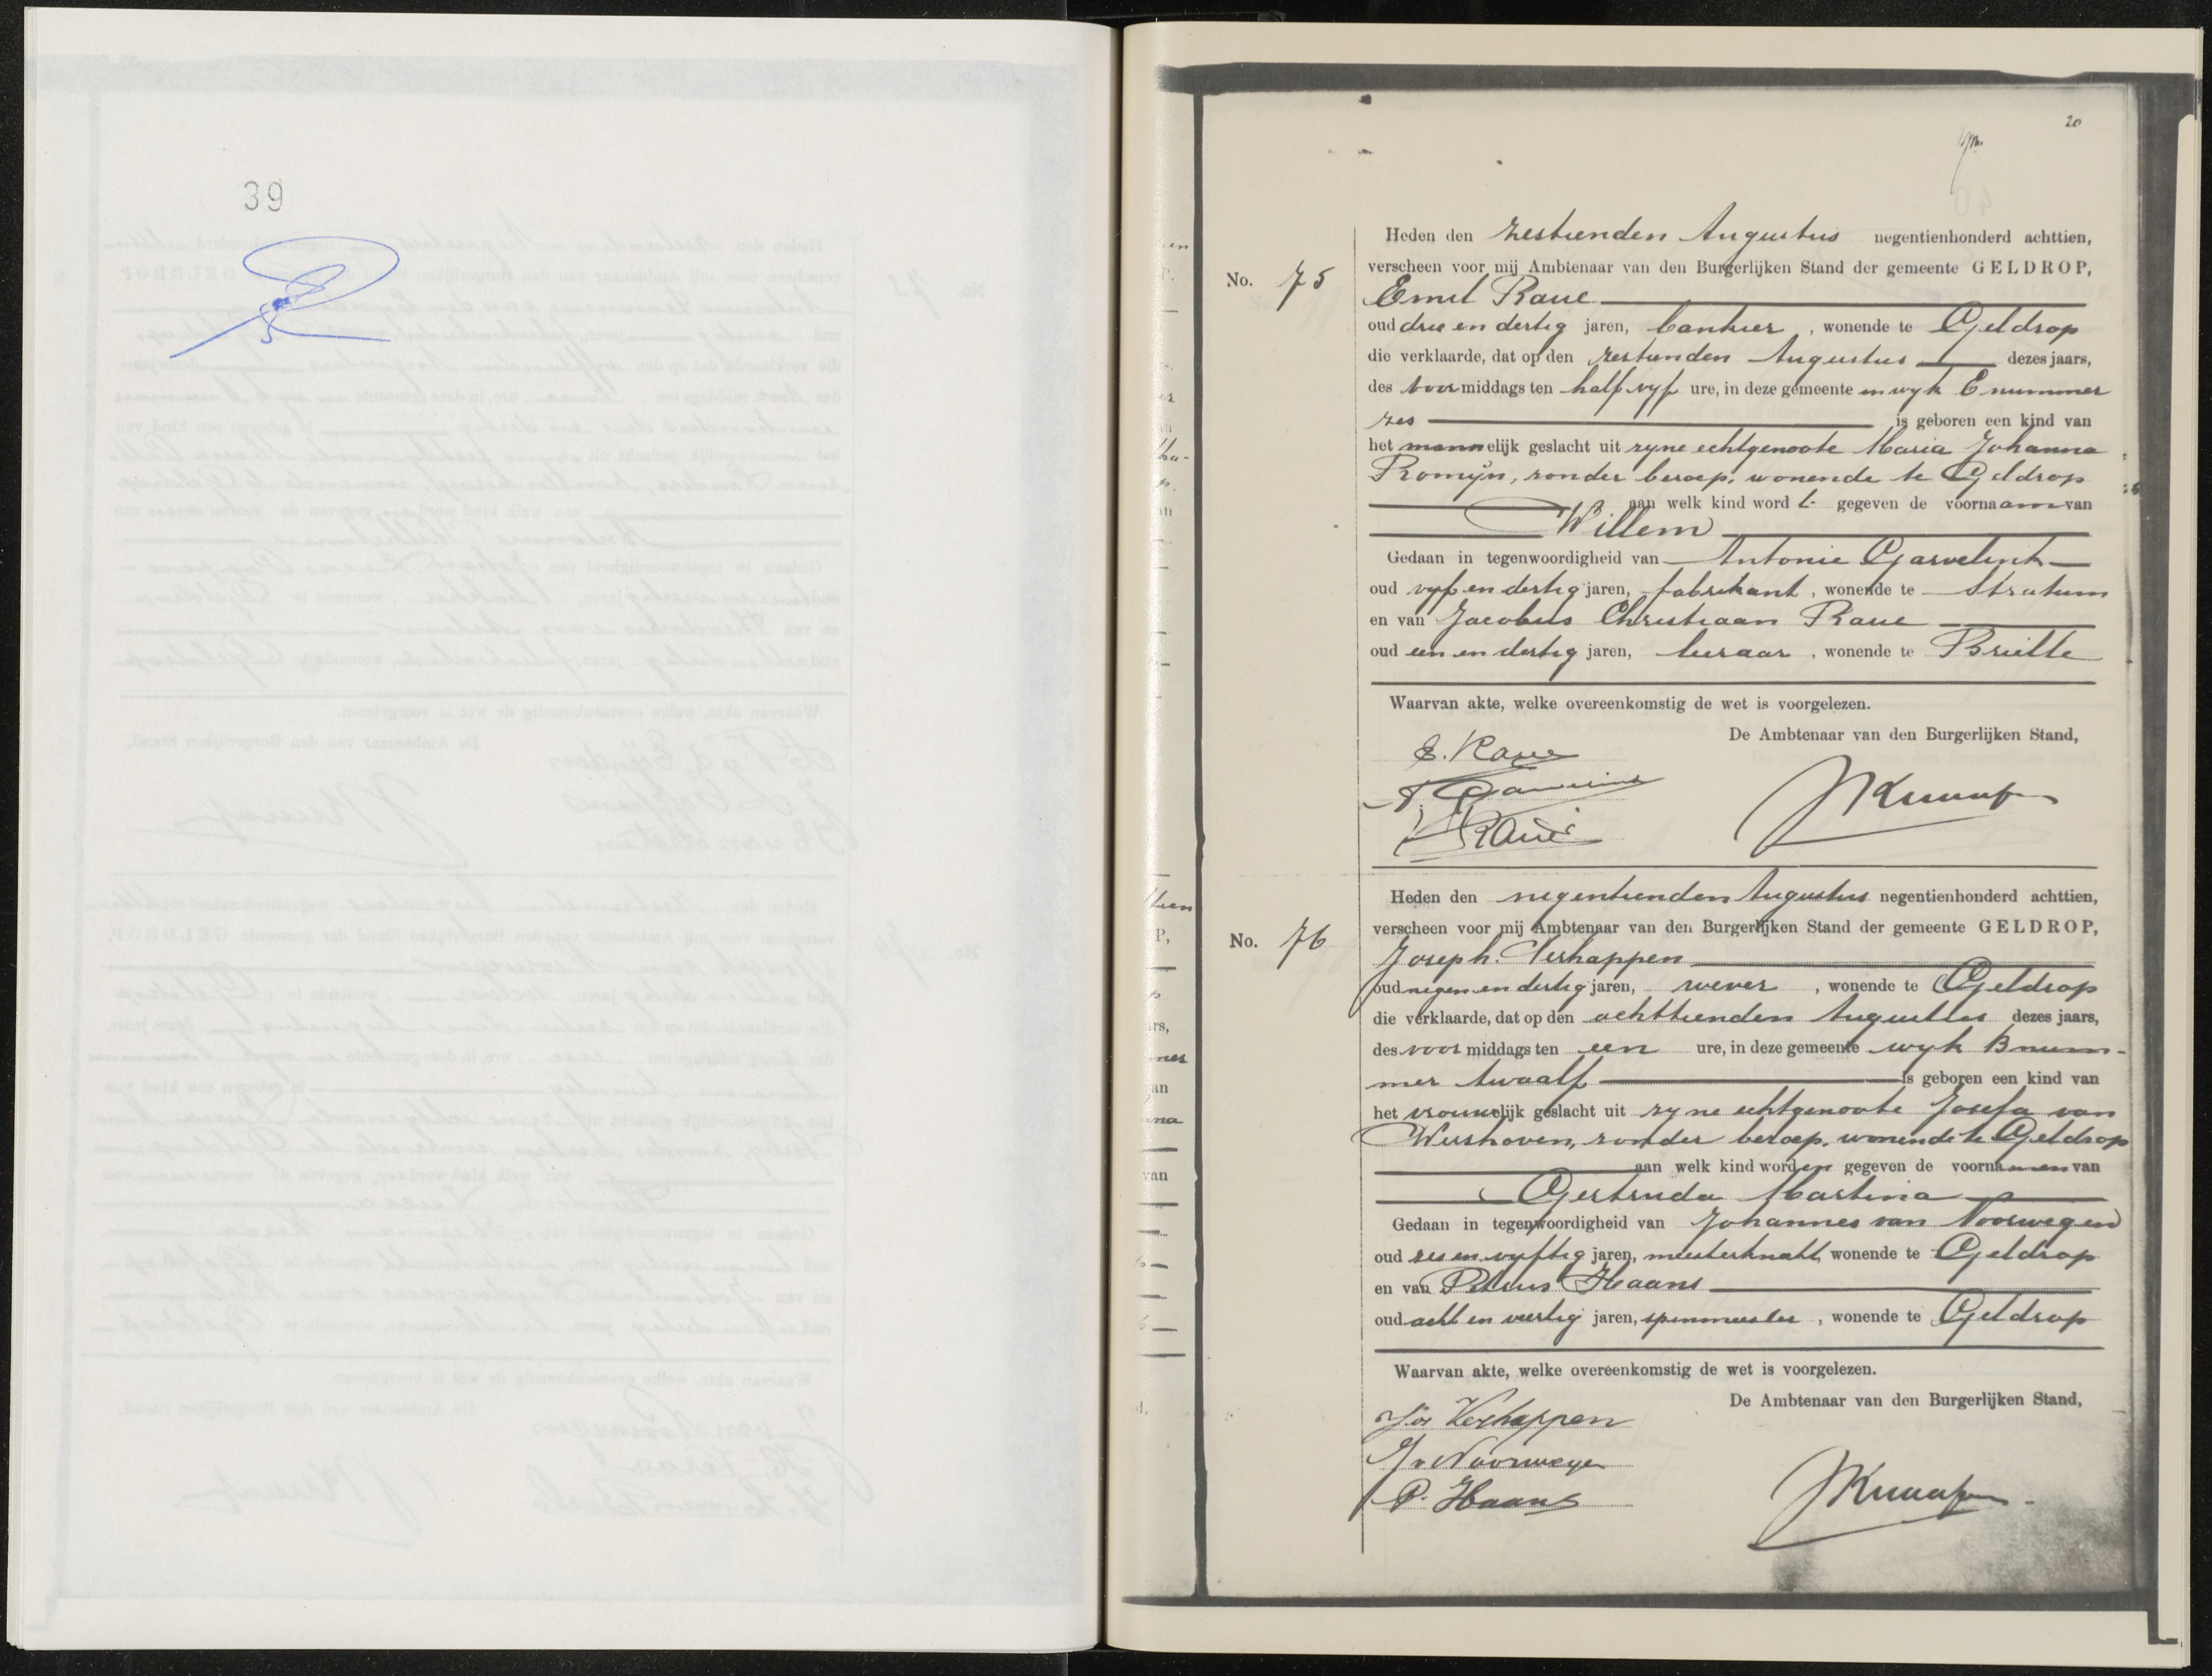 39
20
Heden den zestienden Augustus negentienhonderd achttien,
verscheen voor mij Ambtenaar van den Burgerlijken Stand der gemeente GELDROP,
No. 75
Emil Raue
oud drie en dertig jaren, bankier, wonende te Geldrop
die verklaarde, dat op den zestienden Augustus dezes jaars,
des voormiddags ten half vyf ure, in deze gemeente in wyk E nummer
zes is geboren een kind van
het mannelijk geslacht uit zyne echtgenoote Maria Johanna
Romijn, zonder beroep, wonende te Geldrop
aan welk kind wordt gegeven de voornaam van
Willem
Gedaan in tegenwoordigheid van Antonie Garvelink
oud vyf en dertig jaren, fabrikant, wonende te Stratum
en van Jacobus Christiaan Raue
oud een en dertig jaren, leeraar, wonende te Brielle
Waarvan akte, welke overeenkomstig de wet is voorgelezen.
De Ambtenaar van den Burgerlijken Stand,
E. Raue
Raue
Heden den negentienden Augustus negentienhonderd achttien,
verscheen voor mij Ambtenaar van den Burgerlijken Stand der gemeente GELDROP,
No. 76
Joseph Verhappen
oud negen en dertig jaren, wever, wonende te Geldrop
die verklaarde, dat op den achttienden Augustus dezes jaars,
des voormiddags ten een ure, in deze gemeente wyk B num-
mer twaalf is geboren een kind van
het vrouwelijk geslacht uit zyne echtgenoote Josefa van
Weershoven, zonder beroep, wonende te Geldrop
aan welk kind worden gegeven de voornamen van
Gertruda Martina
Gedaan in tegenwoordigheid van Johannes van Noorwegen
oud zes en vyftig jaren, meesterknecht, wonende te Geldrop
en van Petrus Haans
oud acht en veertig jaren, spinmeester, wonende te Geldrop
Waarvan akte, welke overeenkomstig de wet is voorgelezen.
De Ambtenaar van den Burgerlijken Stand,
Jos Verhappen
J v Noorwegen
P. Haans